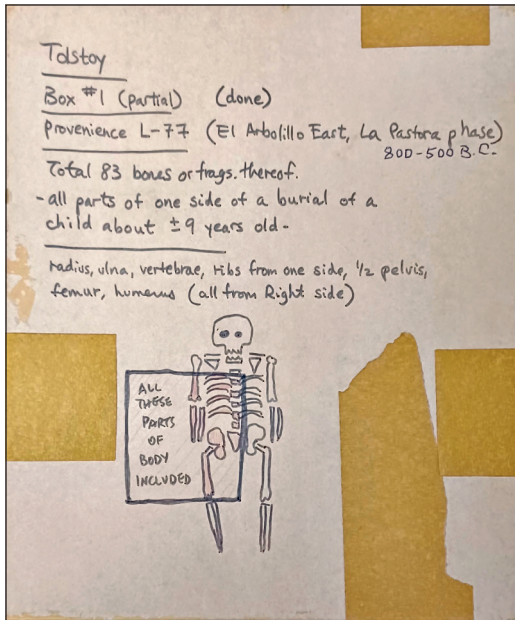 Tolstoy
Box #1 (partial) (done)
Provenience L-77 (El Arbolillo East, La Pastora phase)
800-500 B.C.
Total 83 bones or frags. thereof.
-all parts of one side of a burial of a
child about ±9 years old-
radius, ulna, vertebrae, ribs from one side, 1/2 pelvis,
femur, humerus (all from Right side)
ALL
THESE
PARTS
OF
BODY
INCLUDED